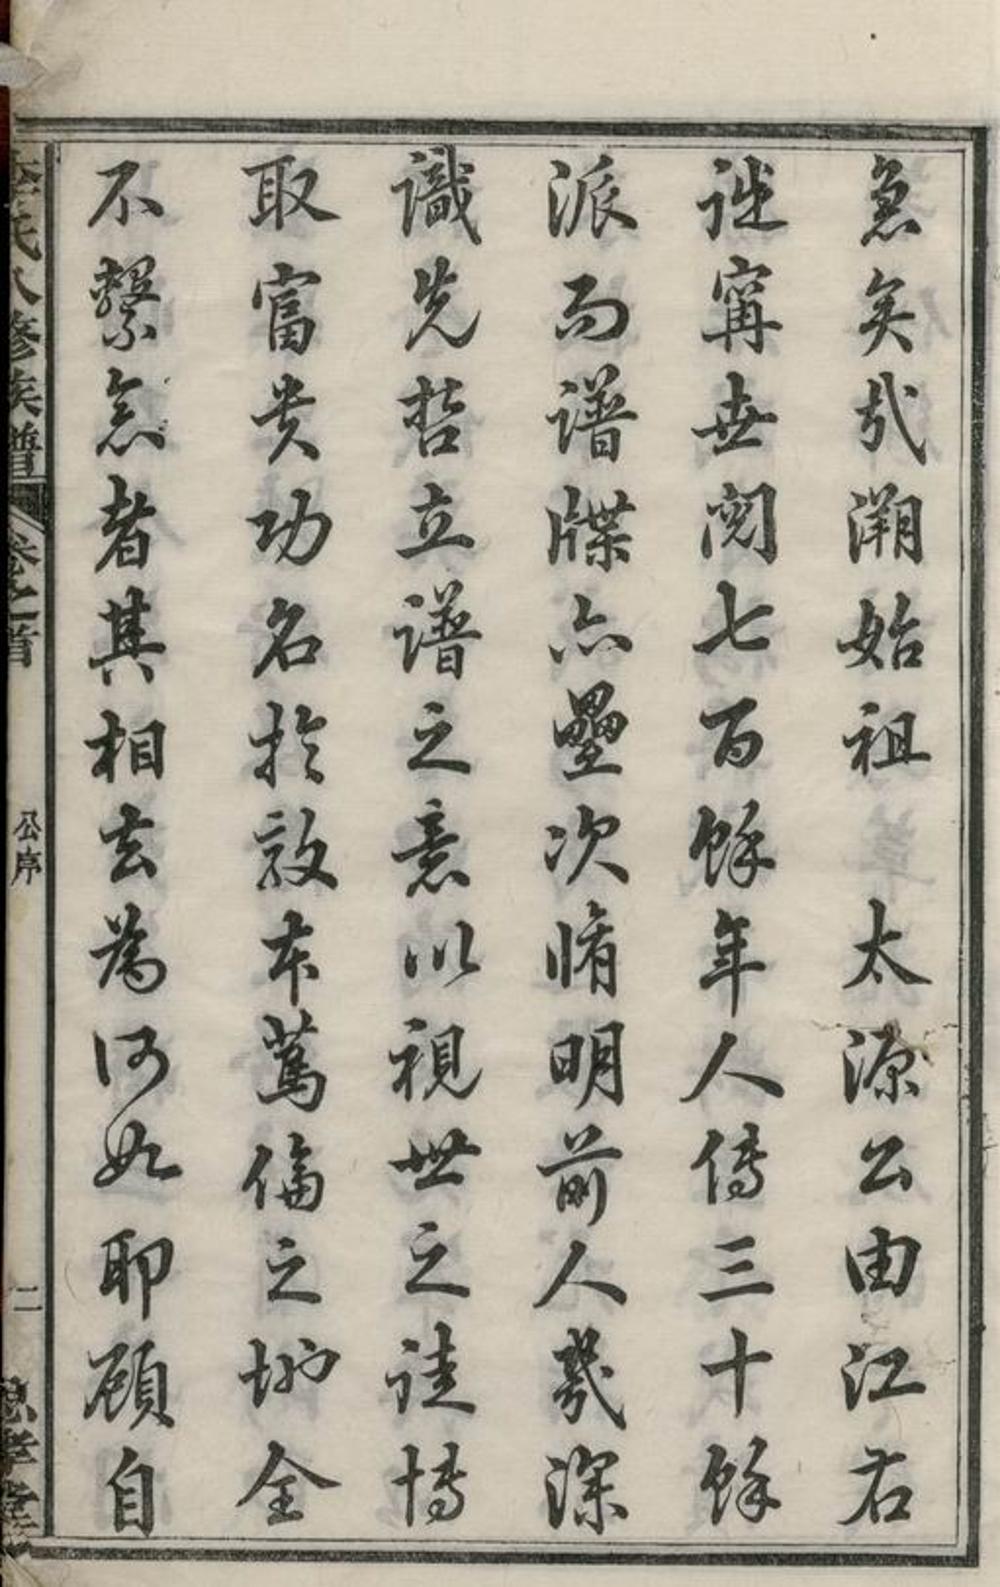 急矣哉溯始祖　太源公由江右
迯甯世閱七百餘年人傳三十餘
派而譜牒亦壘次脩明前人羲深
識先哲立譜之意以視世之詿博
取富贵功名於敦本篤倫之地全
不繫念者其相去為何如耶顧自
李氏八修族譜
卷之首
公序
二